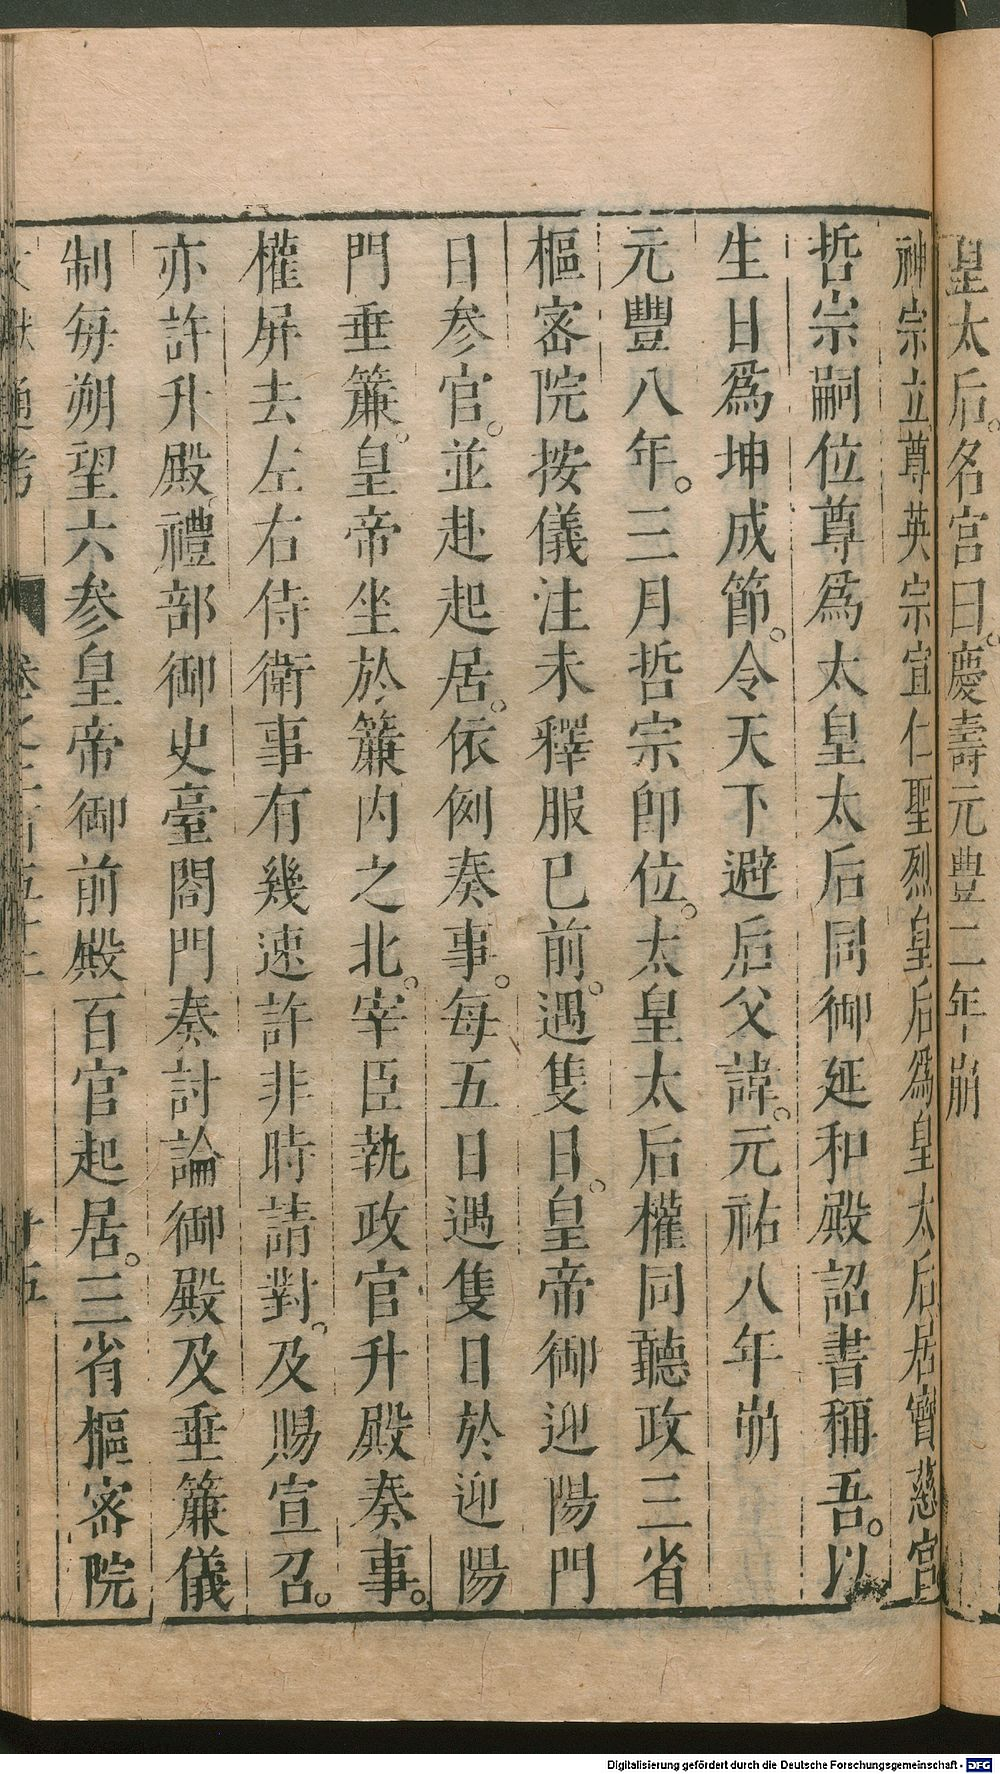 皇太后。名宮曰。慶壽元豊二年崩
神宗立尊英宗宣仁聖烈皇后爲皇太后居寳慈宮
哲宗嗣位尊爲太皇太后同御延和殿詔書稱吾。以
生日爲坤成節。令天下避后父諱。元祐八年崩
元豐八年。三月哲宗卽位。太皇太后權同聽政三省
樞密院按儀注未釋服已前。遇隻日。皇帝御迎陽門
日參官。並赴起居。依例奏事。每五日遇隻日於迎陽
門垂簾。皇帝坐於簾内之北。宰臣執政官升殿奏事。
權屏去左右侍衛事有幾速許非時請對。及賜宣召。
亦許升殿。禮部御史臺閤門奏討論御殿及垂簾儀
制每朔望六參皇帝御前殿百官起居。三省樞密院
通考 卷之 百五十 廿五
Digitalisierung gefördert durch die Deutsche Forschungsgemeinschaft - DFG